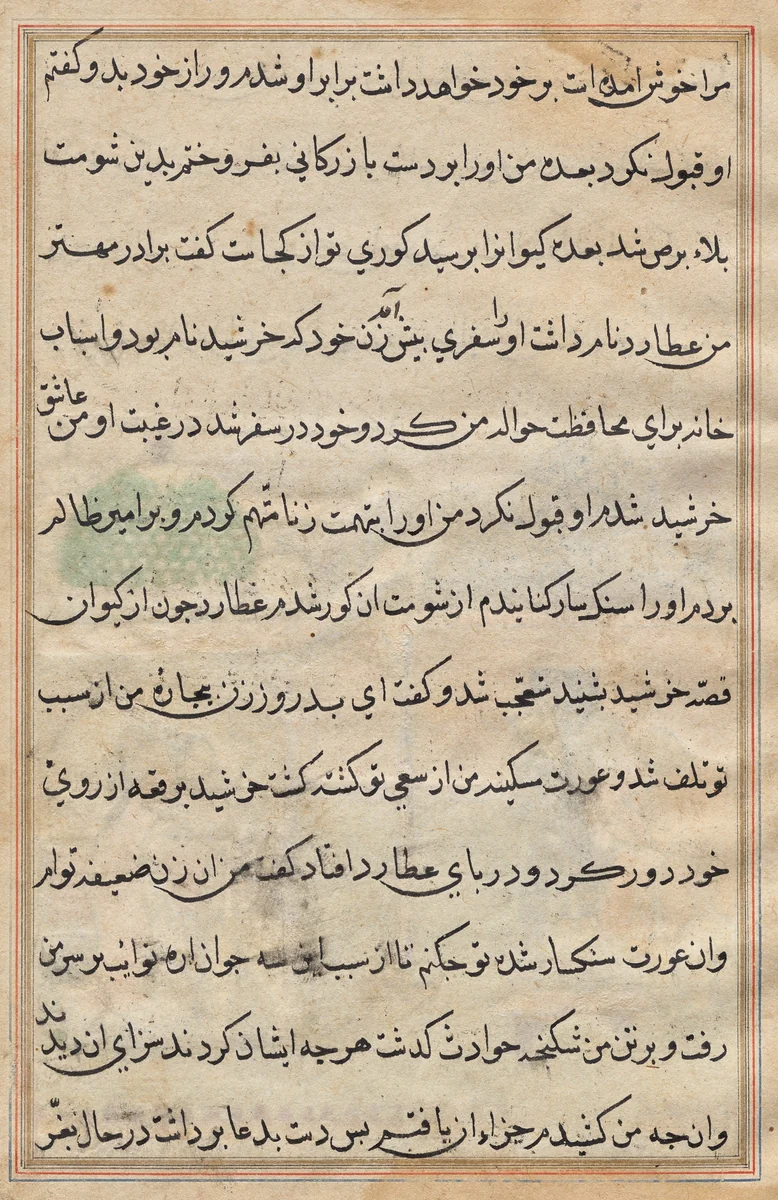 مرا خوش امده است بر خود خواهد داشت برابر او شدم و راز خود بدو کفتم
او قبول نکرد بعده من اورا بر دست بازرکانی بفروختم بدین شومت
بلاء برص شد بعده کیوانرا برسید کوری تو از کجاست کفت برادر مهتر
من عطارد نام داشت اورا سفری بیش آمد زن خود که خرشید نام بود و اسباب
خانه برای محافظت حواله من کرد و خود در سفر شد در غیبت او من عاشق
خرشید شدم او قبول نکرد من اورا بتهمت زنا متّهم کردم و بر امیر ظالم
بردم اورا سنک سار کنانیدم از شومت ان کور شدم عطارد جون از کیوان
قصّه خرشید بشنید متعجّب شد و کفت ای بدروز زن بیجارهٔ من از سبب
تو تلف شد و عورت مسکینه من از سعی تو کشته کشت خرشید برقعه از روی
خود دور کرد و در بای عطارد افتاد کفت من ان زن ضعیفه توام
وان عورت سنکسار شده تو جکنم تا از سبب این سه جوان اره نوایب بر سر من
رفت و بر تن من شکنجه حوادث کدشت هرجه ایشان کردند سزای ان دیدند
وانجه من کشیدم جزاء ان یافتم بس دست بدعا برداشت در حال بغرّ